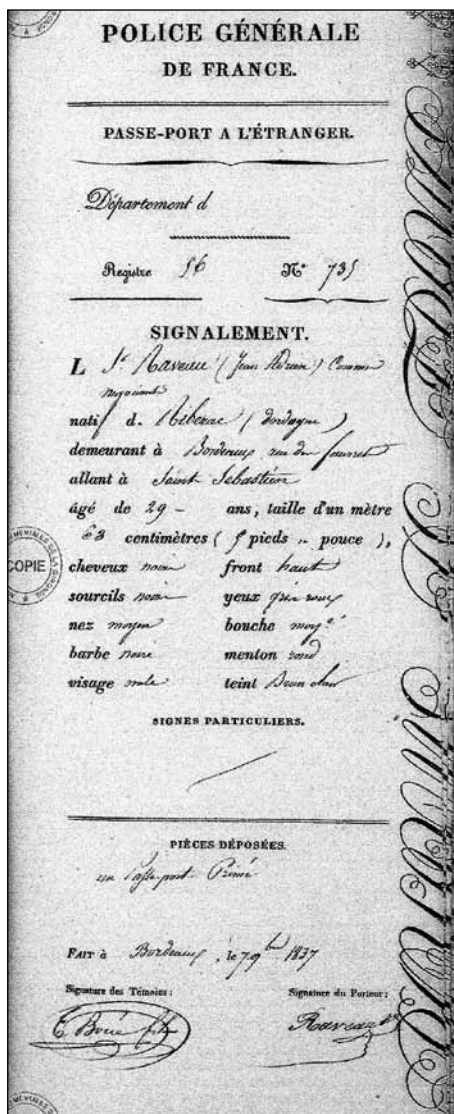 POLICE GÉNÉRALE
DE FRANCE.
PASSE-PORT A L'ÉTRANGER.
Département d
Registre 56 N° 735
SIGNALEMENT.
L Sr (Jean
négociant
natif de Riberac (Dordogne)
demeurant à Bordeaux rue du
allant à Saint Sebastien
âgé de 29 - ans, taille d'un mètre
63 centimètres (5 pieds " pouce),
cheveux noirs front haut
sourcils noirs yeux gris roux
nez moyen bouche moye
barbe noire menton rond
visage ovale teint Brun clair
SIGNES PARTICULIERS.
PIÈCES DÉPOSÉES.
un Passe-port Périmé
FAIT à Bordeaux, le 7 9bre 1837
Signature des Témoins : Signature du Porteur :
COPIE